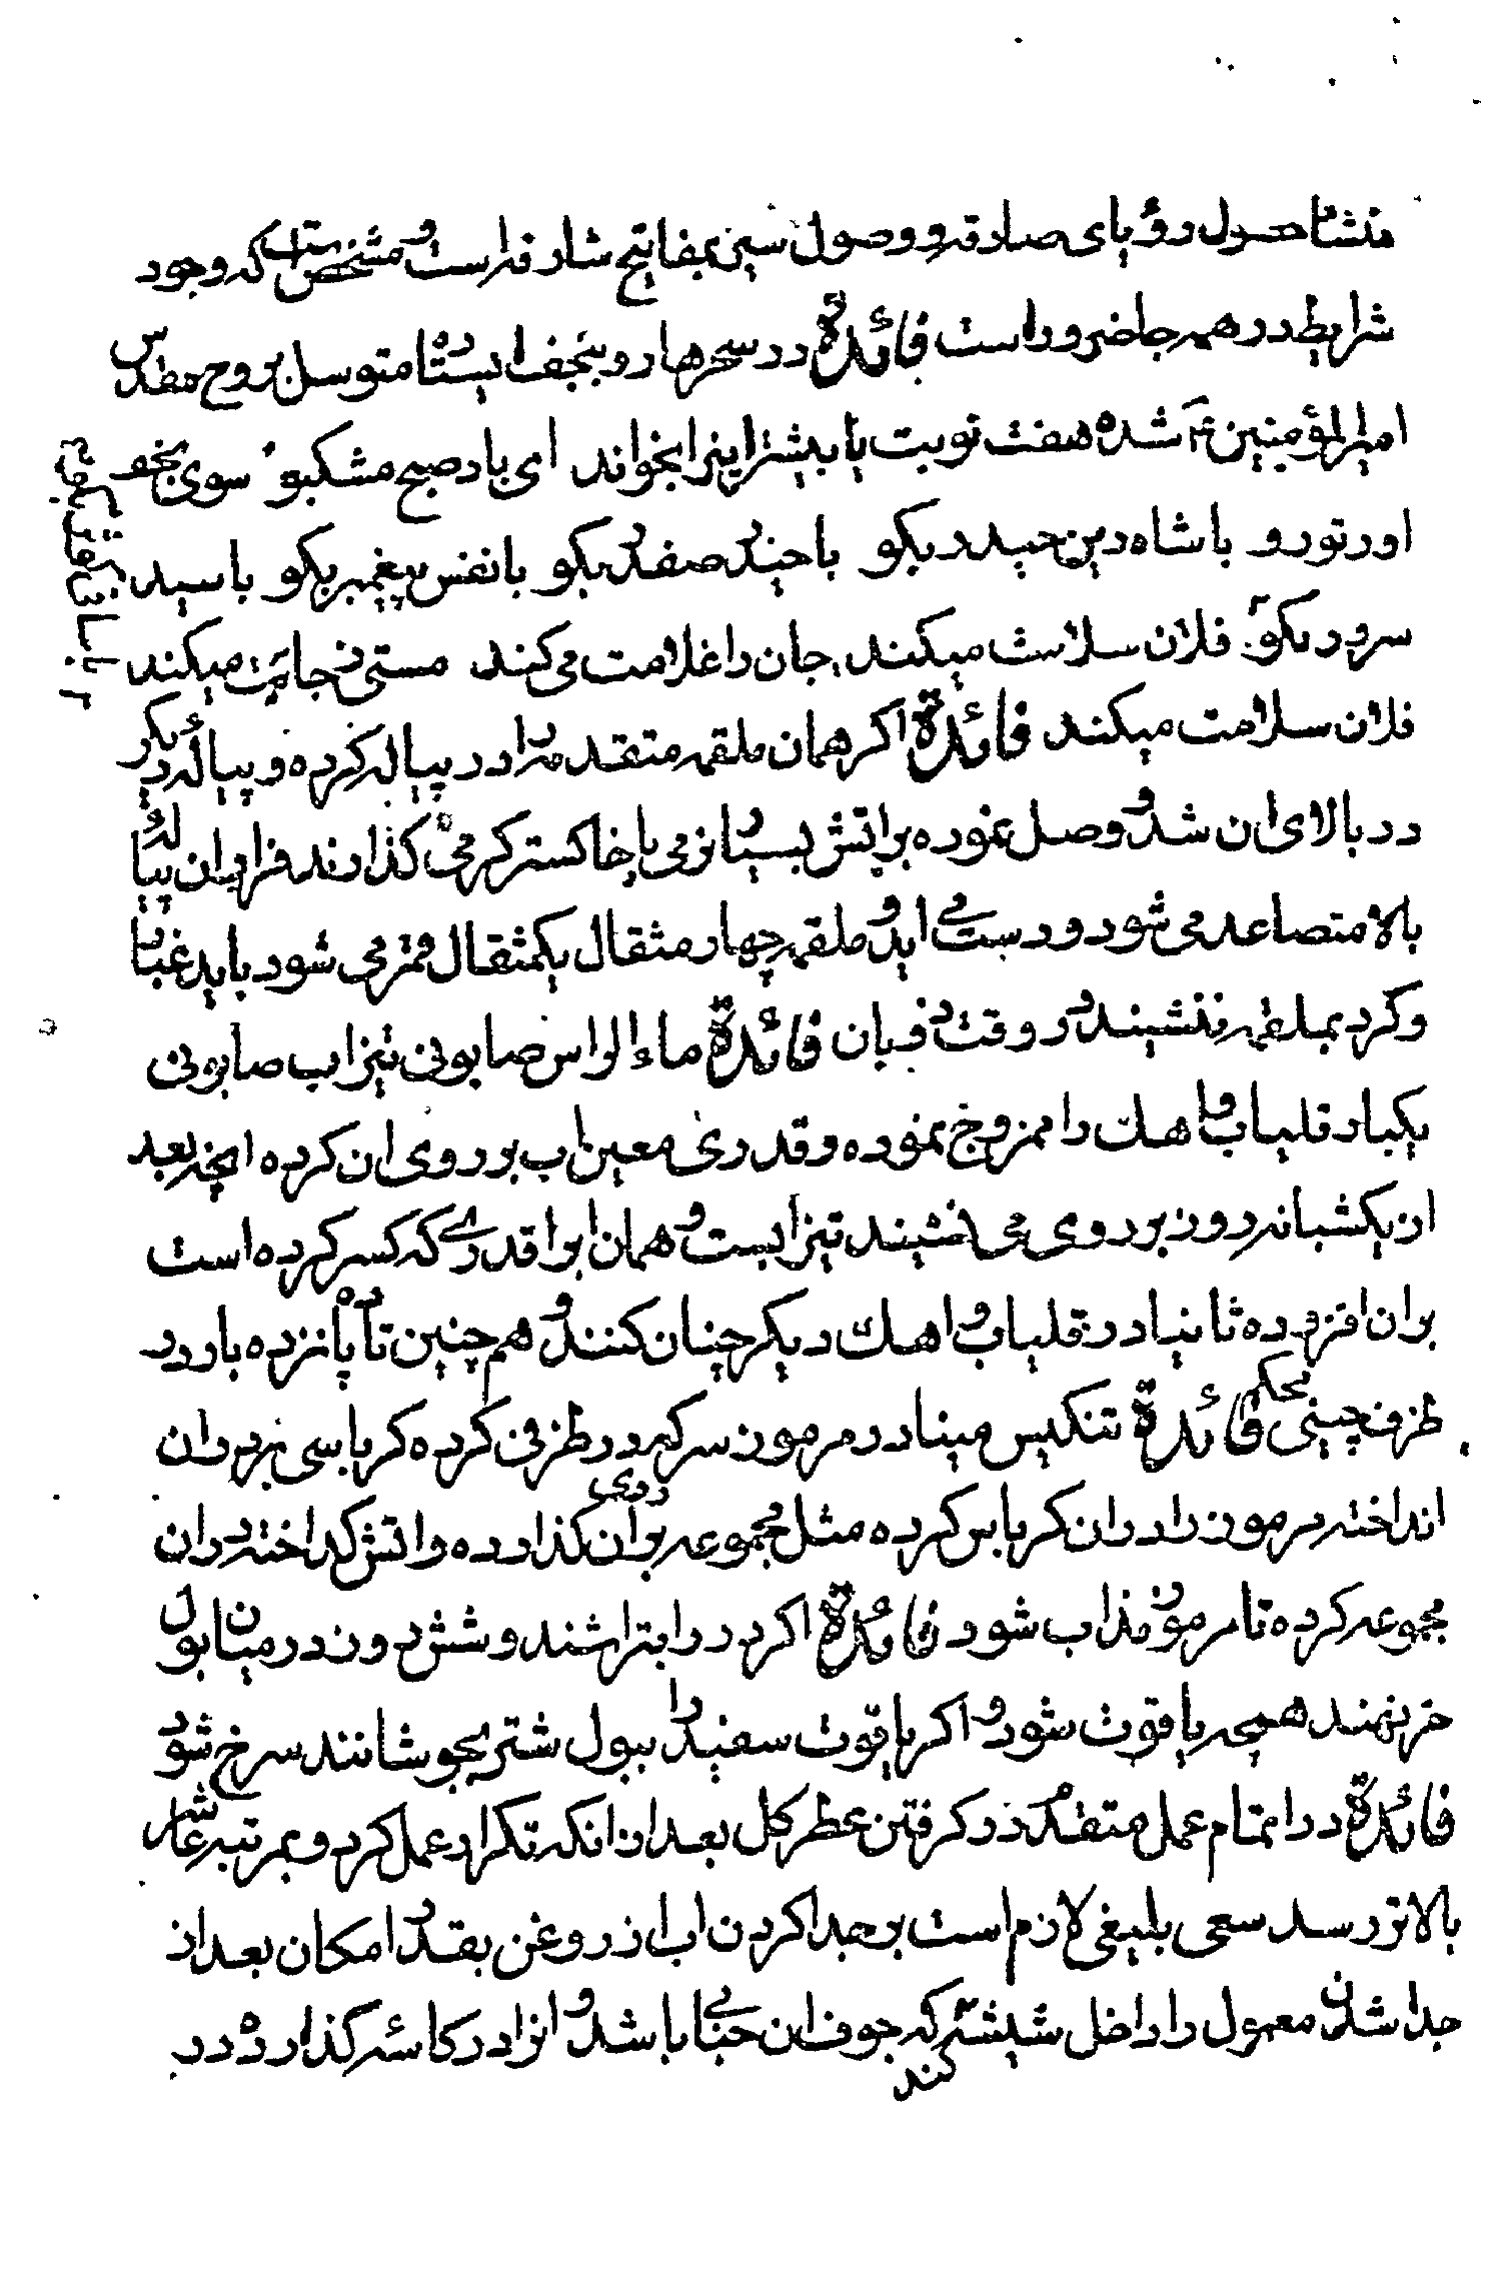 منشا حصول رؤیای صادقه و وصول سین بمفاتیح شارقه است و مشخص است که وجود
شرایط در همه جا ضرور است فائدة در سحرها رو بنجف ایستاده متوسل بروح مقدس
امیر المؤمنین شده هفت نوبت یا بیشتر اینرا بخواند ای باد صبح مشکبو سوی نجف
اور تو رو با شاه دین حیدر بکو با حیدر صفدر بکو با نفس پیغمبر بکو با سید
سرور بکو فلان سلامت میکند جان را غلامت می کند مستی ز جامت میکند
فلان سلامت میکند فائدة اکر همان ملقمه متقدمه را در پیاله کرده و پیاله دیکر
در بالای ان شد و وصل نموده براتش بسیار نرمی یا خاکستر کرمی کذارند فرار ان پیاله
بالا متصاعد می شود و درست می اید و ملقمه چهار مثقال یکمثقال قمر می شود باید غبار
و کرد بملقمه ننشیند در وقت ذوبان فائدة ماء الراس صابونی تیزاب صابونی
یکبار قلیاب و اهک را ممزوج نموده و قدری معین اب بر روی ان کرده انچه بعد
از یکشبانه روز بر روی می نشیند تیزابست و همان ابرا قدری که کسر کرده است
بران افزوده ثانیا در قلیاب و اهک دیکر چنان کنند و هم چنین تا پانزده بار در
ظرف چینی محکم فائدة تنکیس مینا در مرموز سرکه در ظرفی کرده کرباسی بر دران
انداخته مرموز را دران کرباس کرده مثل مجموعه بر روی ان کذارده و اتش کداخته دران
مجموعه کرده تا مرموز مذاب شود فائدة اکر در را بتراشند و شش روز در میان بول
خر نهند همچه یاقوت شود و اکر یاقوت سفید را ببول شتر بجوشانند سرخ شود
فائدة در اتمام عمل متقدم در کرفتن عطر کل بعد از انکه تکرار عمل کرد و بمرتبه عاشر
بالاتر رسد سعی بلیغی لازم است بر جدا کردن اب از روغن بقدر امکان بعد از
جدا شدن معمول را داخل شیشه کند که جوف ان حبابی باشد و انرا در کاسه کذارده در